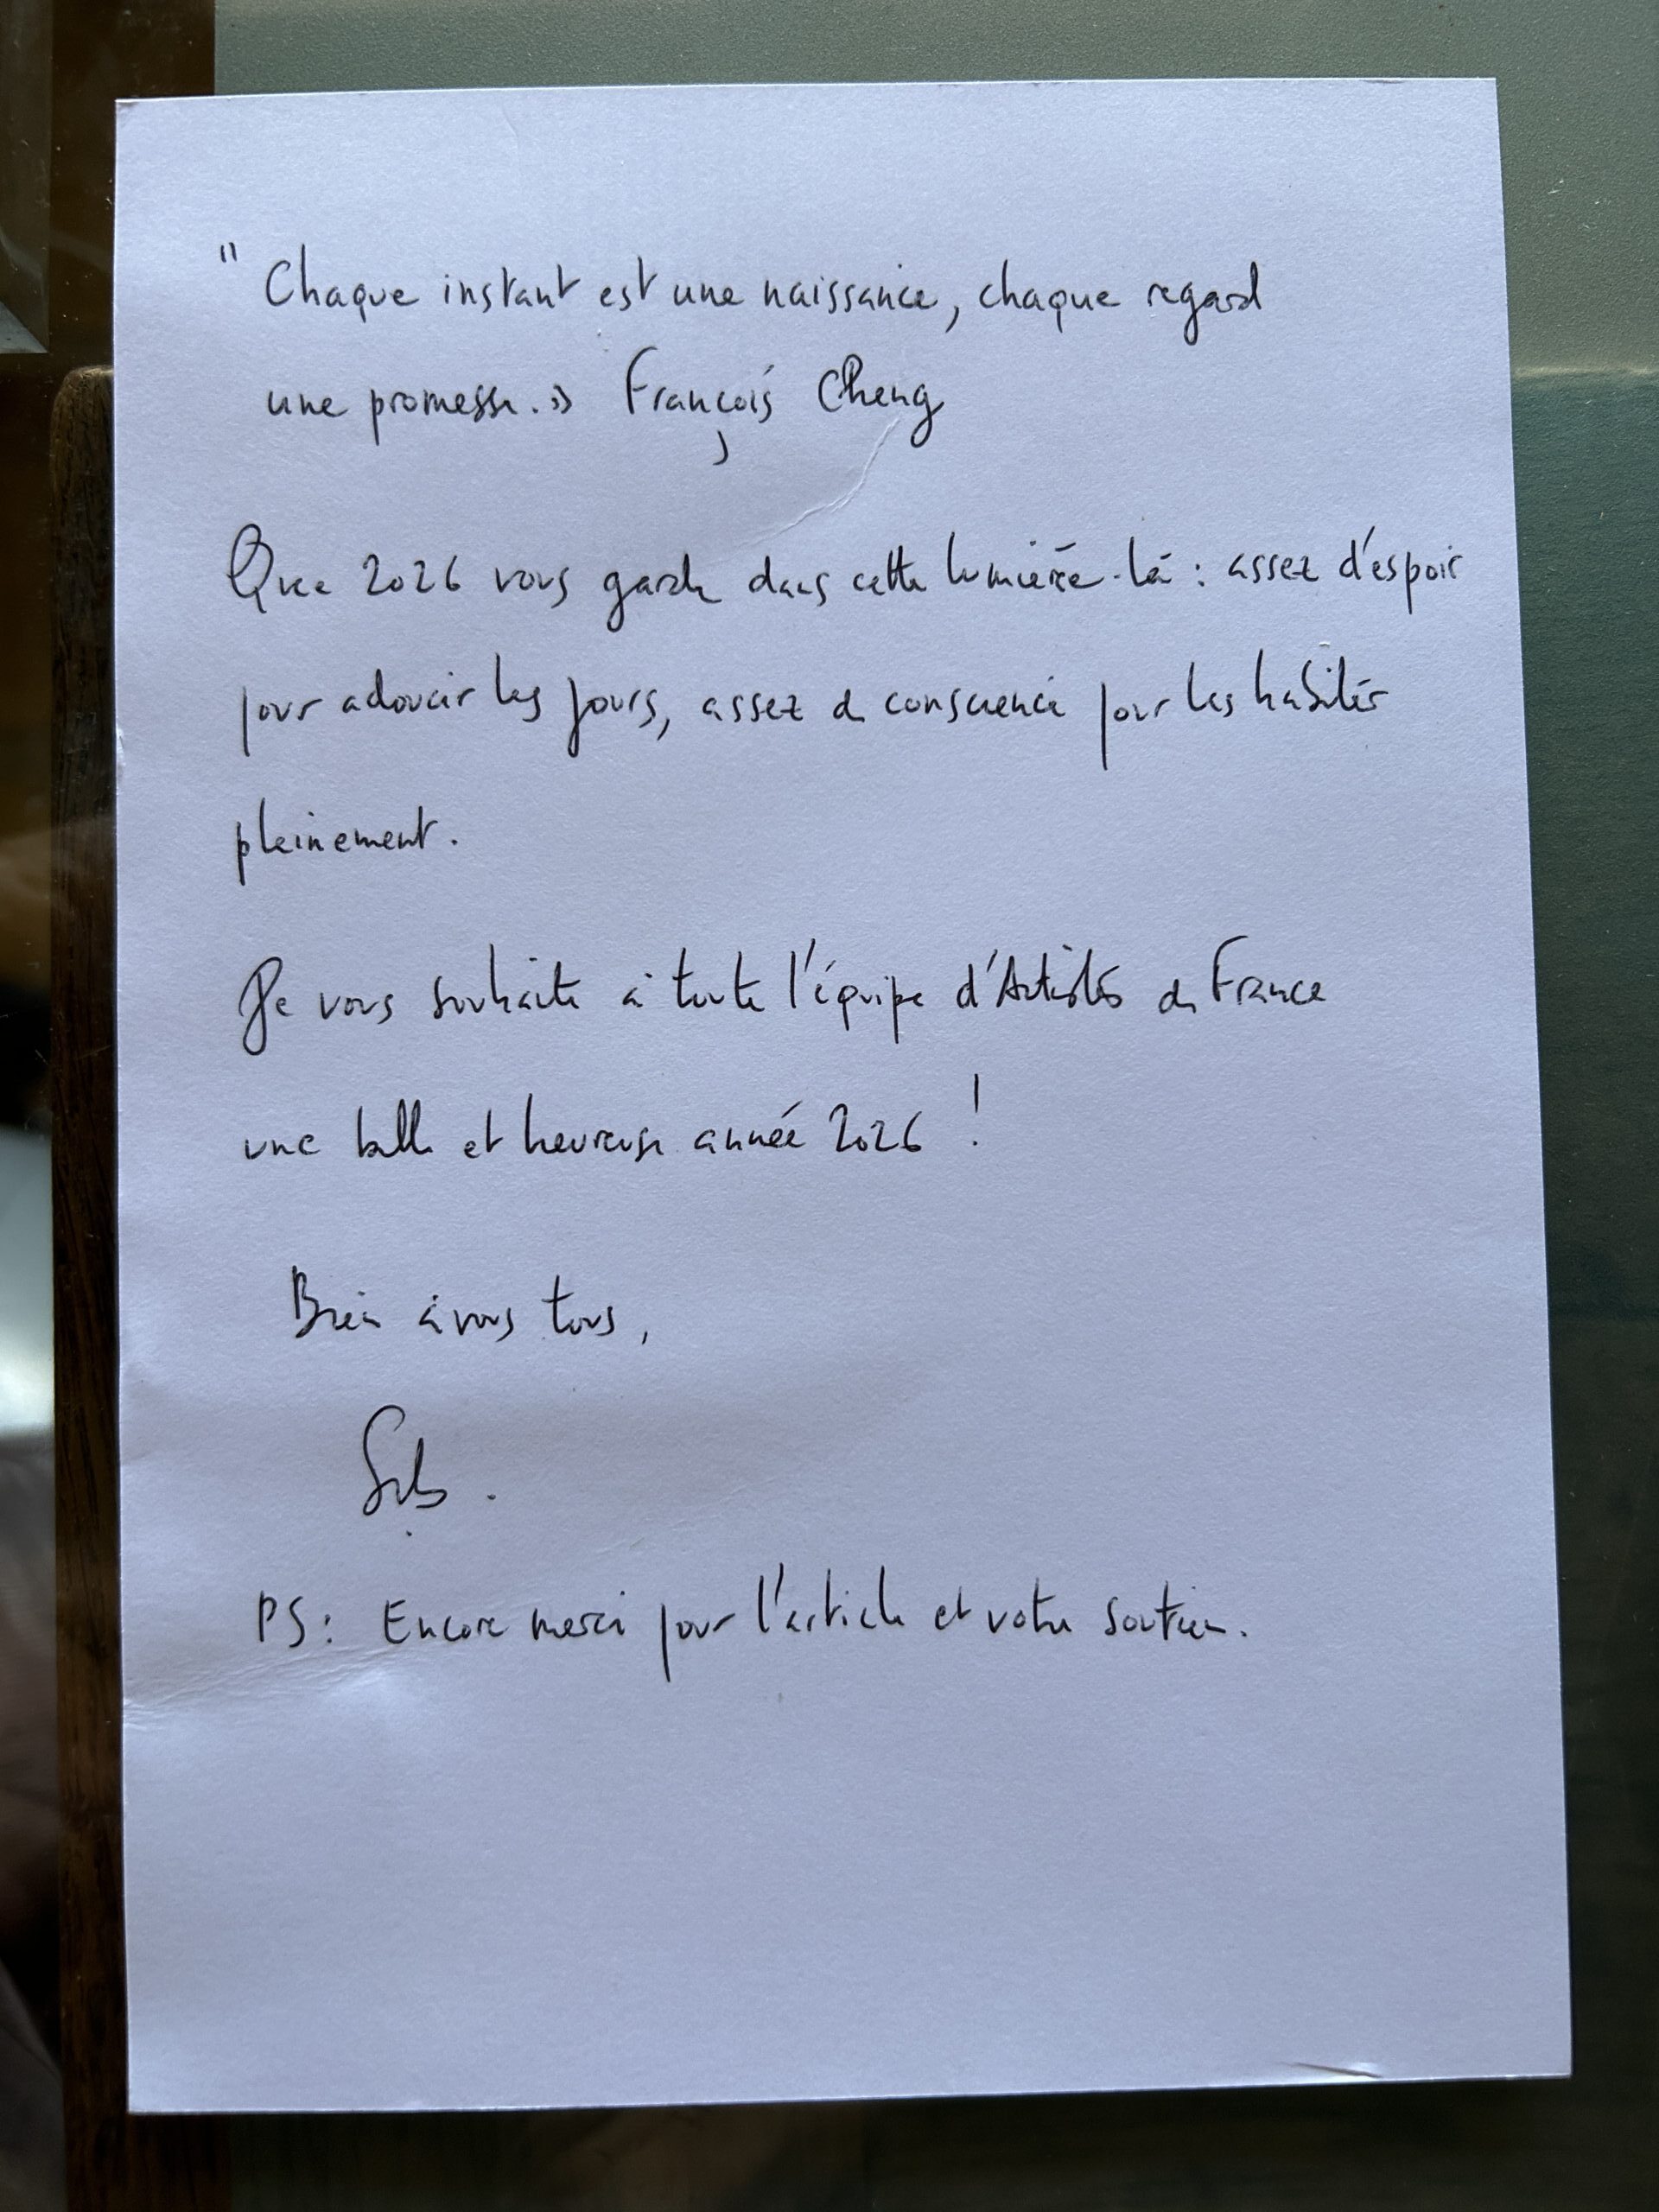 " Chaque instant est une naissance, chaque regard
une promesse. » François Cheng
Que 2026 vous garde dans cette lumière-là : assez d'espoir
pour adoucir les jours, assez de conscience pour les habiter
pleinement.
Je vous souhaite à toute l'équipe d'Artistes de France
une belle et heureuse année 2026 !
Bien à vous tous,
PS : Encore merci pour l'article et votre soutien.